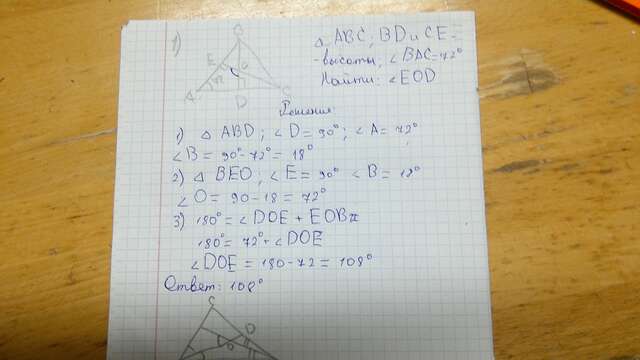 1)
B
E
O
72°
A
D
C
△ ABC; BD и CE -
- высоты; ∠ BAC = 72°
Найти: ∠ EOD
Решение
1) △ ABD; ∠ D = 90°; ∠ A = 72°
∠ B = 90° - 72° = 18°
2) △ BEO; ∠ E = 90° ∠ B = 18°
∠ O = 90 - 18 = 72°
3) 180° = ∠ DOE + EOB
180° = 72° + ∠ DOE
∠ DOE = 180 - 72 = 108°
Ответ: 108°
C
D
O